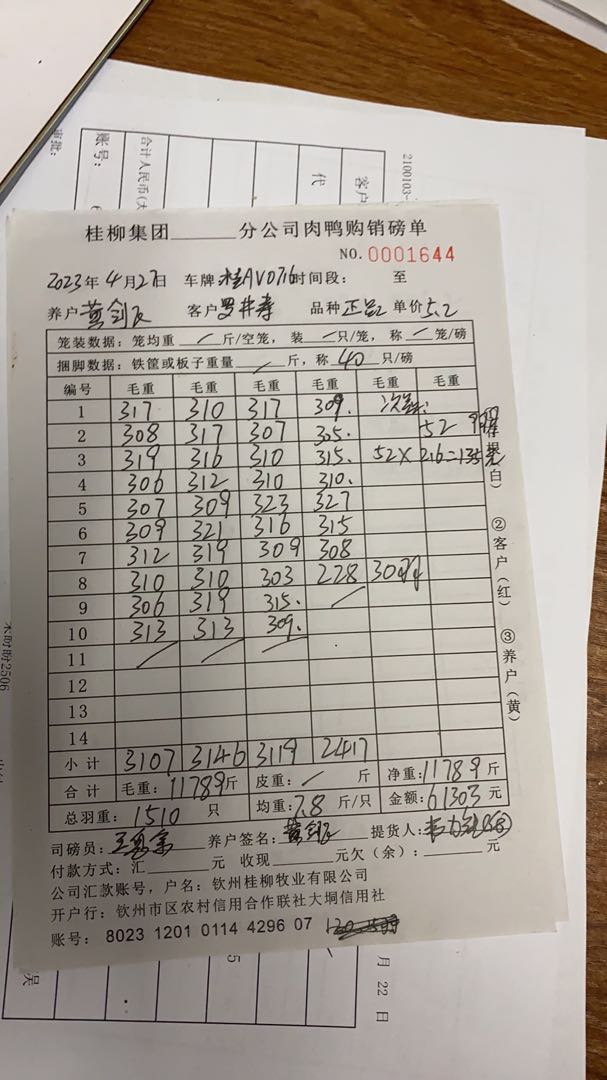 2100103-
客户
代
合计人民币(大
账号:
审批:
桂柳集团______分公司肉鸭购销磅单
NO. 0001644
2023年4月27日 车牌 桂AV0716 时间段: 至
养户 黄剑 客户 罗井寿 品种 正品 单价 5.2
笼装数据: 笼均重 / 斤/空笼, 装 / 只/笼, 称 / 笼/磅
捆脚数据: 铁筐或板子重量 / 斤, 称 40 只/磅
编号 毛重 毛重 毛重 毛重 毛重 毛重
1 317 310 317 309.
2 308 317 307 305. 52
3 319 316 310 315. 52× 2.6=135
4 306 312 310 310.
5 307 309 323 327
6 309 321 316 315
7 312 319 309 308
8 310 310 303 228 30只
9 306 319 315. /
10 313 313 309.
11 / / /
12
13
14
小计 3107 3146 3119 2417
合计 毛重: 11789斤 皮重: / 斤 净重: 11789 斤
总羽重: 1510 只 均重: 7.8 斤/只 金额: 61303 元
司磅员: 养户签名: 黄剑 提货人:
付款方式: 汇______元 收现______元欠(余): ______元
公司汇款账号, 户名: 钦州桂柳牧业有限公司
开户行: 钦州市区农村信用合作联社大垌信用社
账号: 8023 1201 0114 4296 07
白)
②客户(红)
③养户(黄)
月 22 日